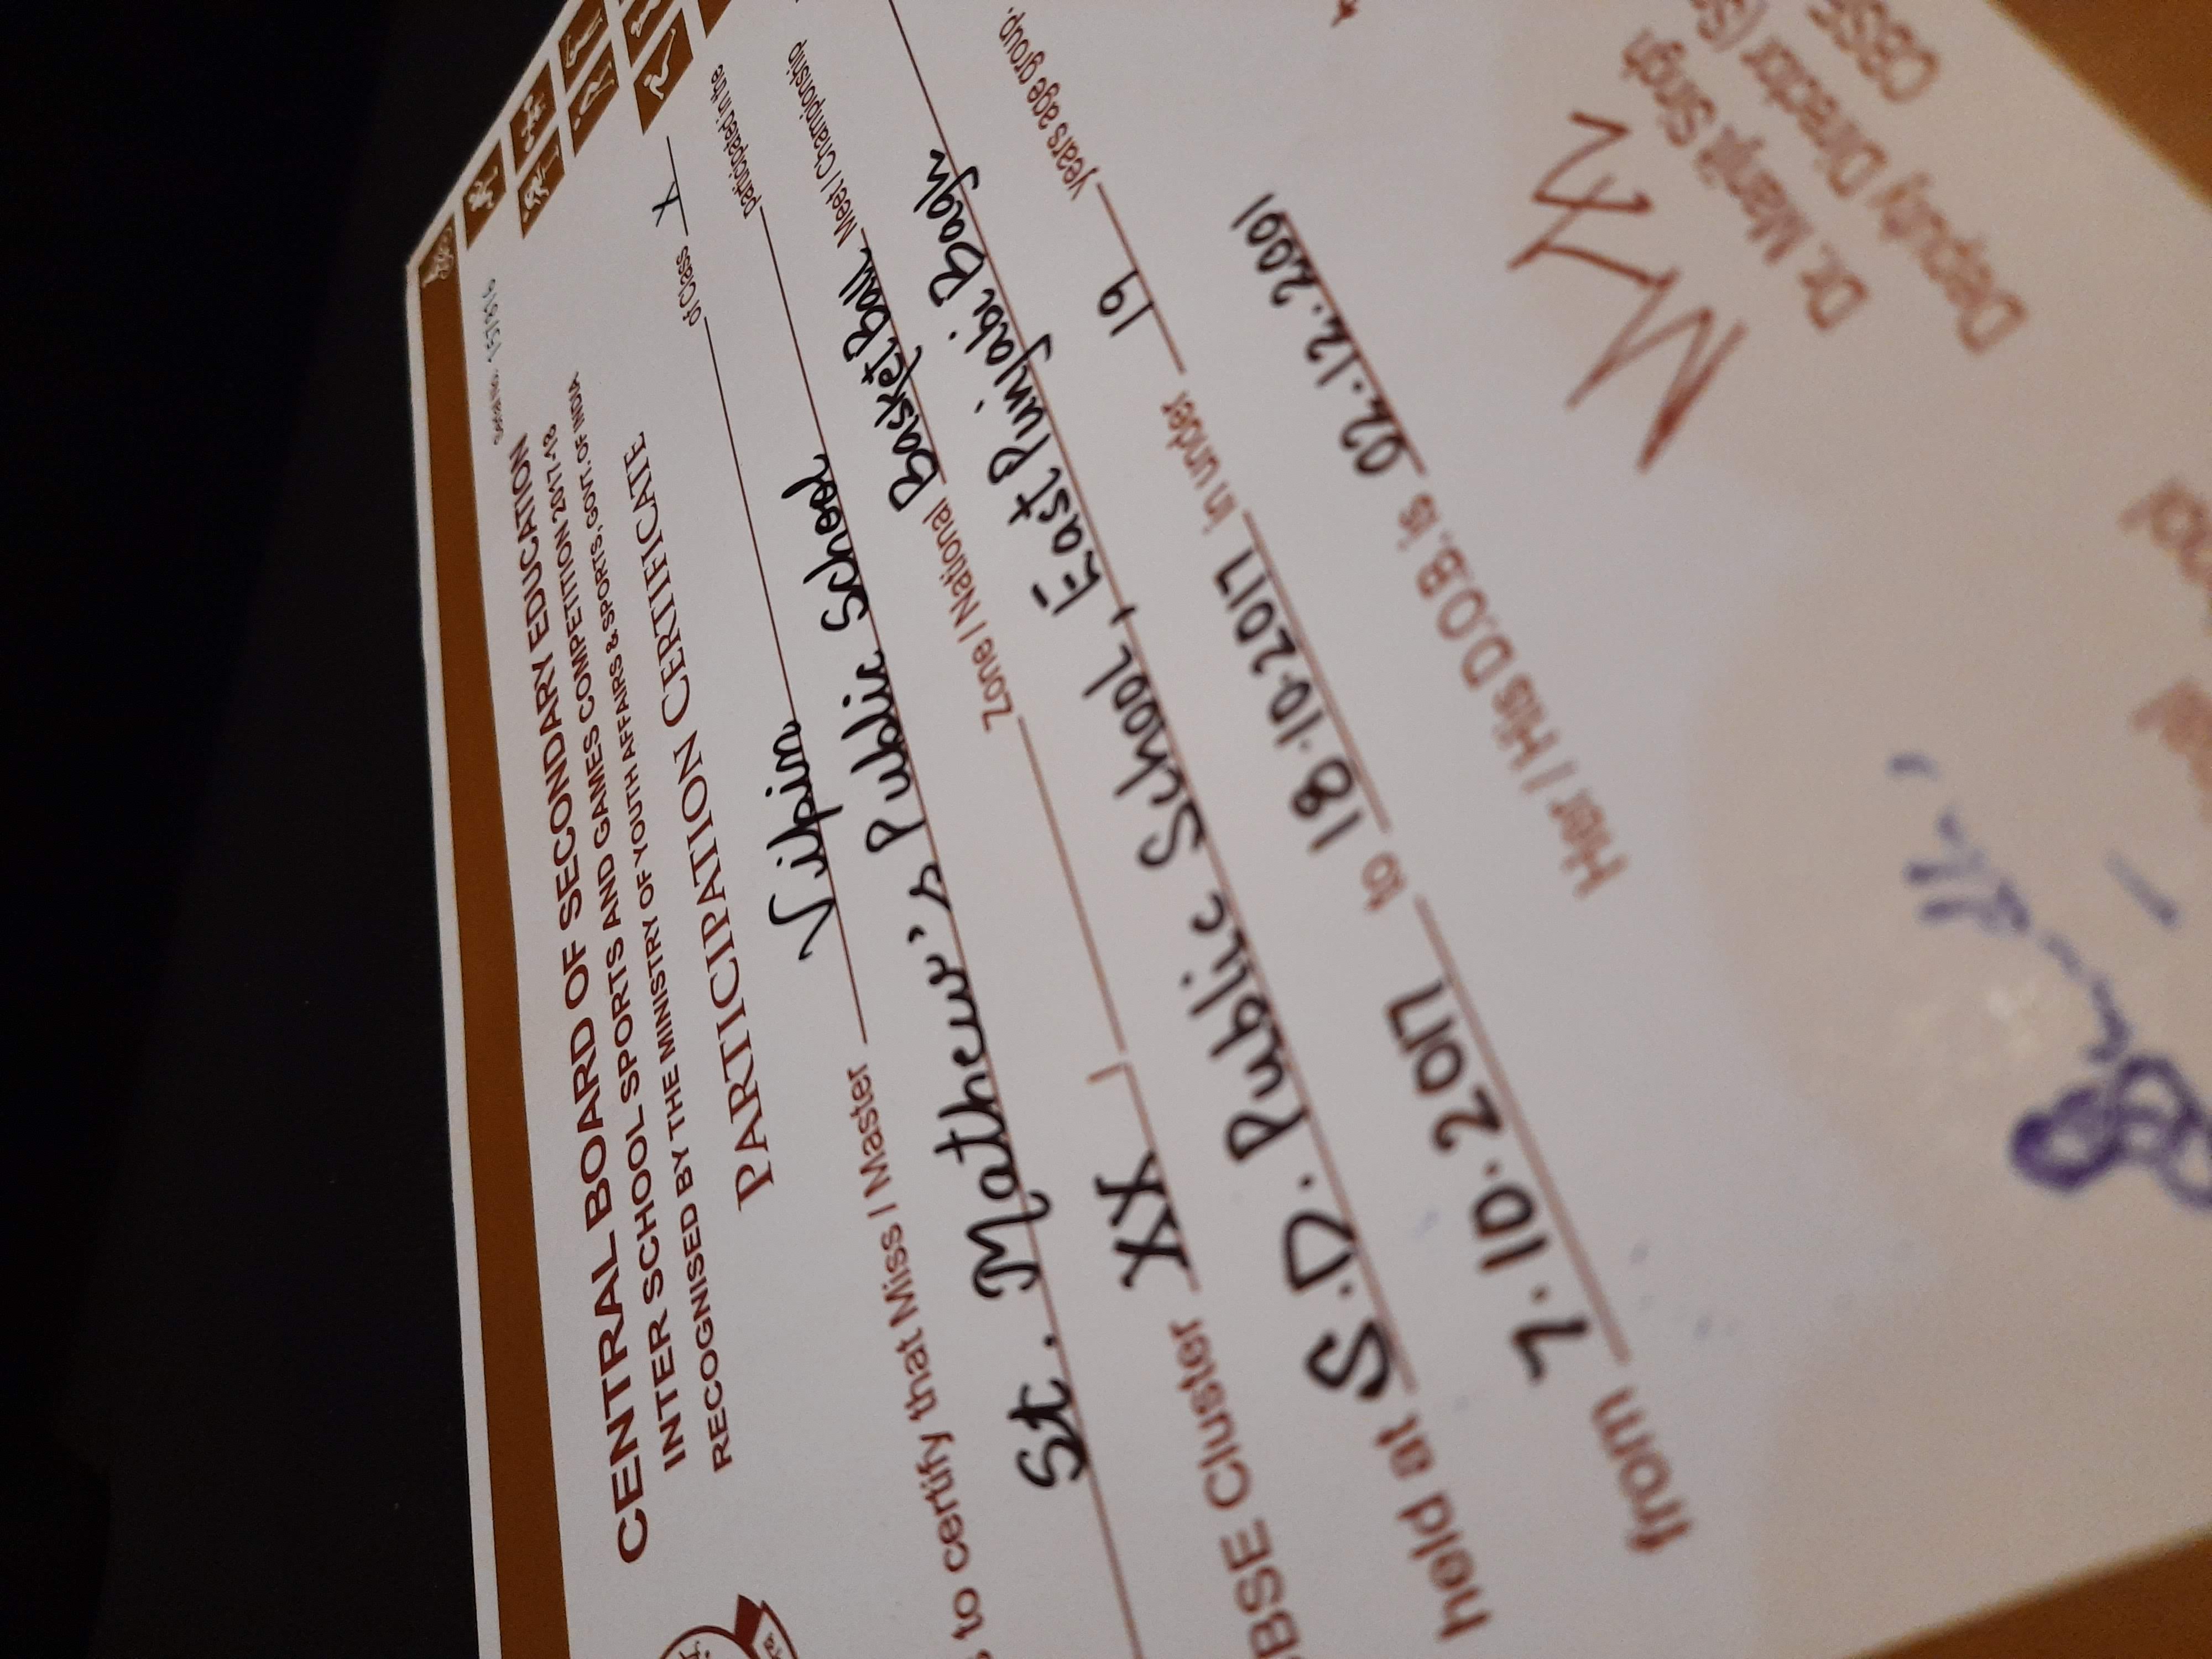 Serial No. 157816
CENTRAL BOARD OF SECONDARY EDUCATION
INTER SCHOOL SPORTS AND GAMES COMPETITION 2017-18
RECOGNISED BY THE MINISTRY OF YOUTH AFFAIRS & SPORTS, GOVT. OF INDIA
PARTICIPATION CERTIFICATE
to certify that Miss / Master Vipin of Class X
St. Mathew's Public School participated in the
BSE Cluster XX / Zone / National BasketBall Meet / Championship
held at S.D. Public School, East Punjabi Bagh
from 7.10.2017 to 18.10.2017 in under 19 years age group.
Her / His D.O.B. is 02.12.2001
Dr. Manjit Singh
Deputy Director
CBSE